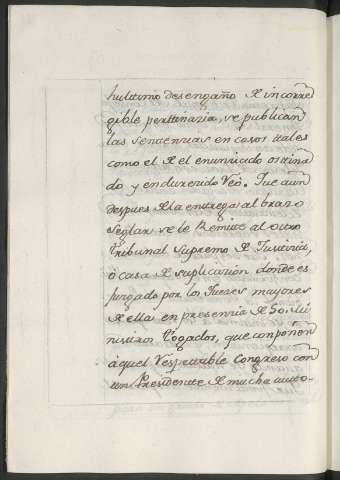 hultimo desengaño de incorre
gible perttinazia, se publican
las sentencias en casos ttales
como el de el enunciado ostina
do y endurezido Reo. Que aun
despues de la entrega al brazo
Seglar se le Remite al ottro
tribunal Supremo de Justizia,
ò casa de suplicazion donde es
juzgado por los Jueses mayores
de ella en presenzia de 50. Mi
nistros Togados, que componen
àquel Respettable Congreso con
un Presidente de mucha autto-